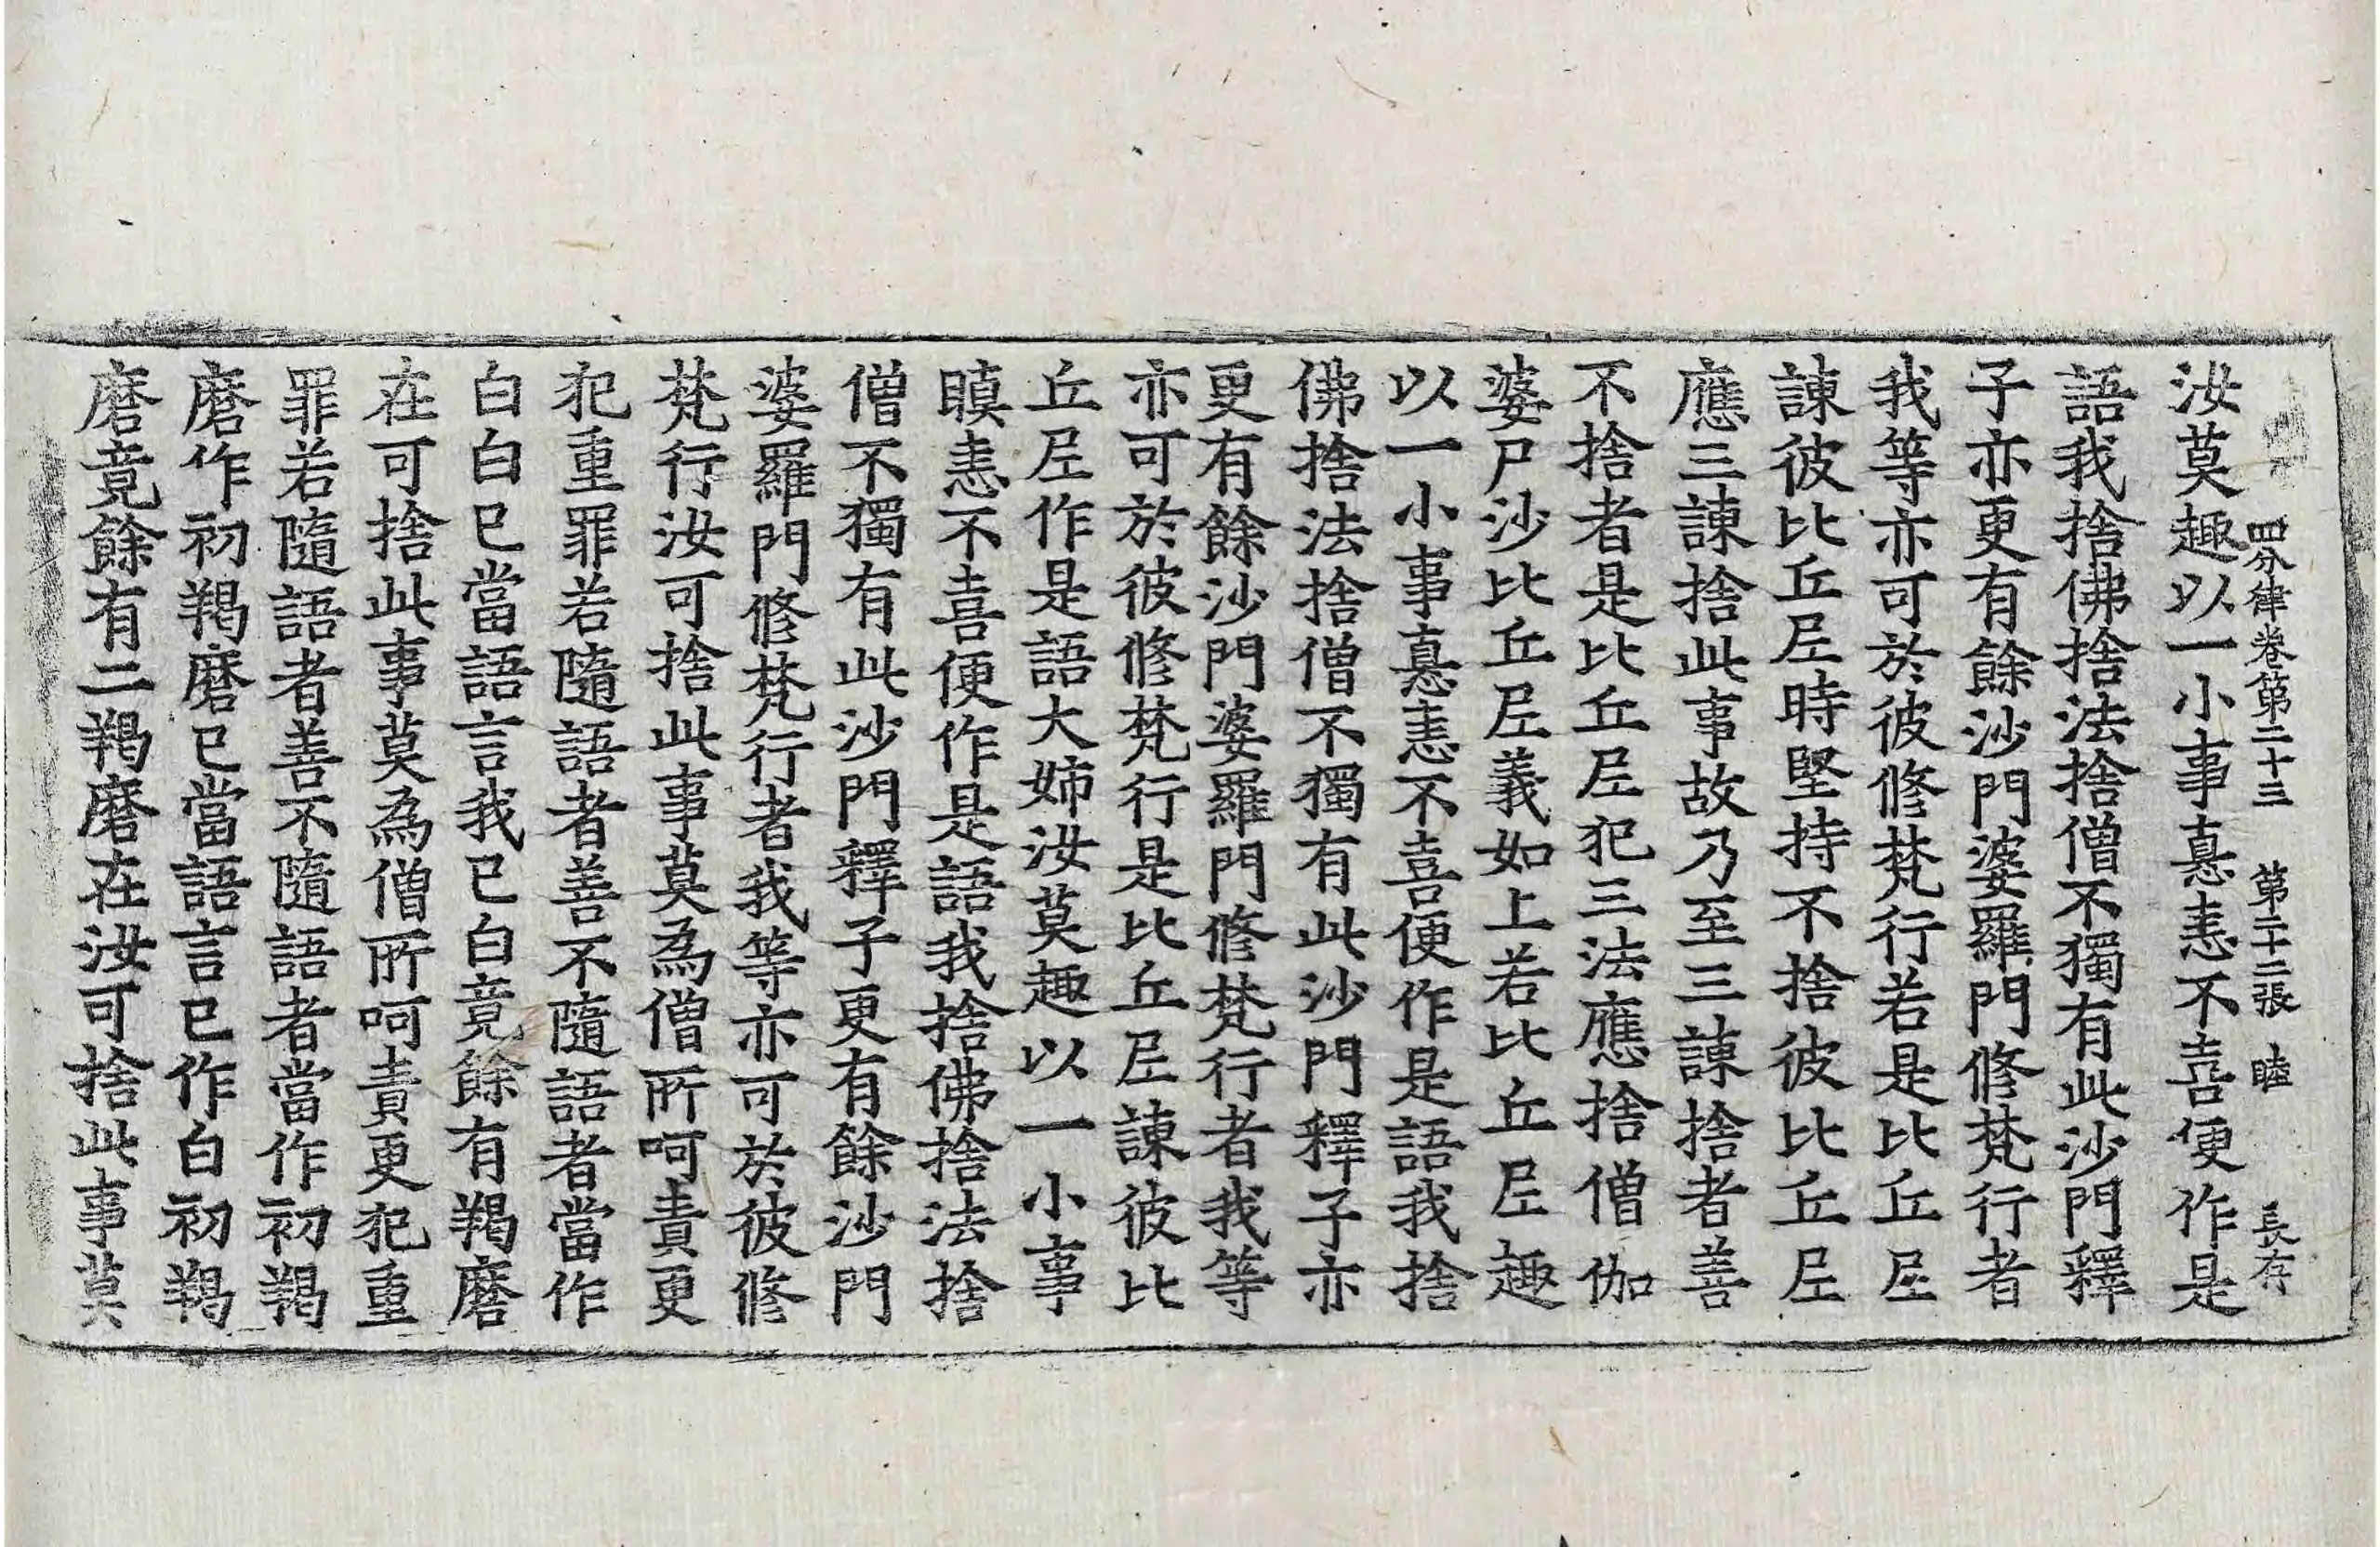 四分律卷第二十三　第二十二張　睦　長存
汝莫趣以一小事恚恚不喜便作是
語我捨佛捨法捨僧不獨有此沙門釋
子亦更有餘沙門婆羅門修梵行者
我等亦可於彼修梵行若是比丘𡰱
諫彼比丘𡰱時堅持不捨彼比丘𡰱
應三諫捨此事故乃至三諫捨者善
不捨者是比丘𡰱犯三法應捨僧伽
婆尸沙比丘𡰱義如上若比丘𡰱趣
以一小事恚恚不喜便作是語我捨
佛捨法捨僧不獨有此沙門釋子亦
更有餘沙門婆羅門修梵行者我等
亦可於彼修梵行是比丘𡰱諫彼比
丘𡰱作是語大姉汝莫趣以一小事
瞋恚不喜便作是語我捨佛捨法捨
僧不獨有此沙門釋子更有餘沙門
婆羅門修梵行者我等亦可於彼修
梵行汝可捨此事莫為僧所呵責更
犯重罪若隨語者善不隨語者當作
白白已當語言我已白竟餘有羯磨
在可捨此事莫為僧所呵責更犯重
罪若隨語者善不隨語者當作初羯
磨作初羯磨已當語言已作白初羯
磨竟餘有二羯磨在汝可捨此事莫